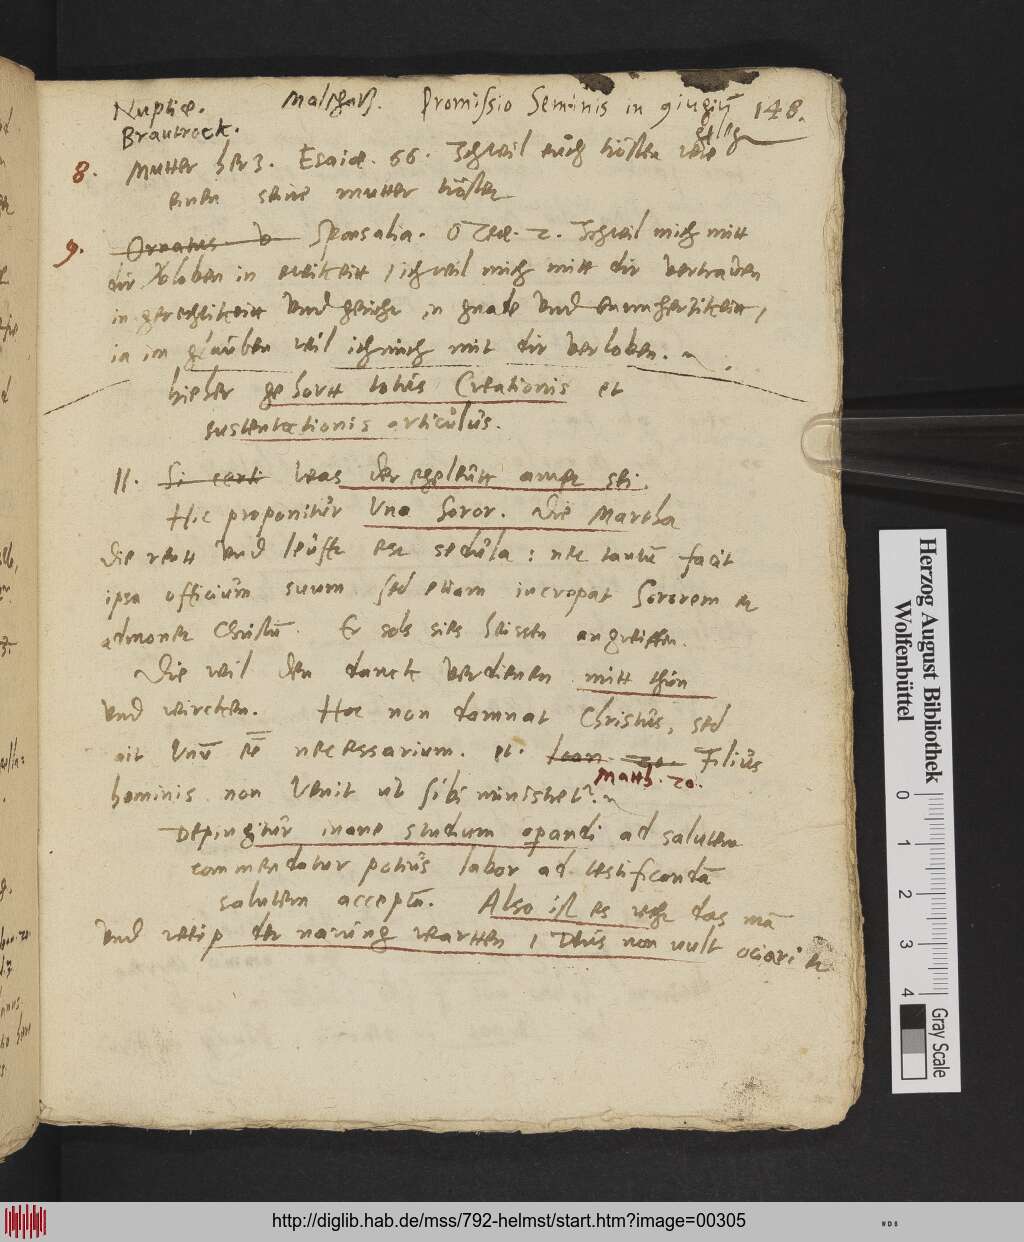 Nuptiæ. Malschatz. Promissio Seminis in 148.
Brautrock.
8. Mutter herz. Esaiæ. 66. Ich wil euch trösten wie
einen seine mutter tröstet
9. Ornatus Sponsalia. Ozeæ. 2. Ich wil mich mitt
dir verloben in ewikeitt, ich wil mich mitt dir vertrawen
in gerechtikeitt und gericht in gnade und barmhertikeitt,
ia im glauben wil ich mich mit dir verloben.
hieher gehortt totus Creationis et
sustentationis articulus.
II. was der eheleutt ampt sei.
Hic proponitur una Soror. Die Martha
die rentt und leufft est sedula: nec tantū facit
ipsa officium suum sed etiam increpat Sororem et
admonet Christū. Er sols sies heissen angreiffen.
Die wil den danck verdienen mitt thun
und wircken. Hoc non damnat Christus, sed
ait Unū est necessarium. et. Filius
Matth. 20.
hominis non venit ut sibi ministret.
Depingitur inane studium operandi ad salutem
commendatur potius labor ad testificandā
salutem acceptā. Also ist es recht das mā
und weip der narung wartten, Deus non vult ociari et
Herzog August Bibliothek
Wolfenbüttel
0 1 2 3 4
Gray Scale
http://diglib.hab.de/mss/792-helmst/start.htm?image=00305